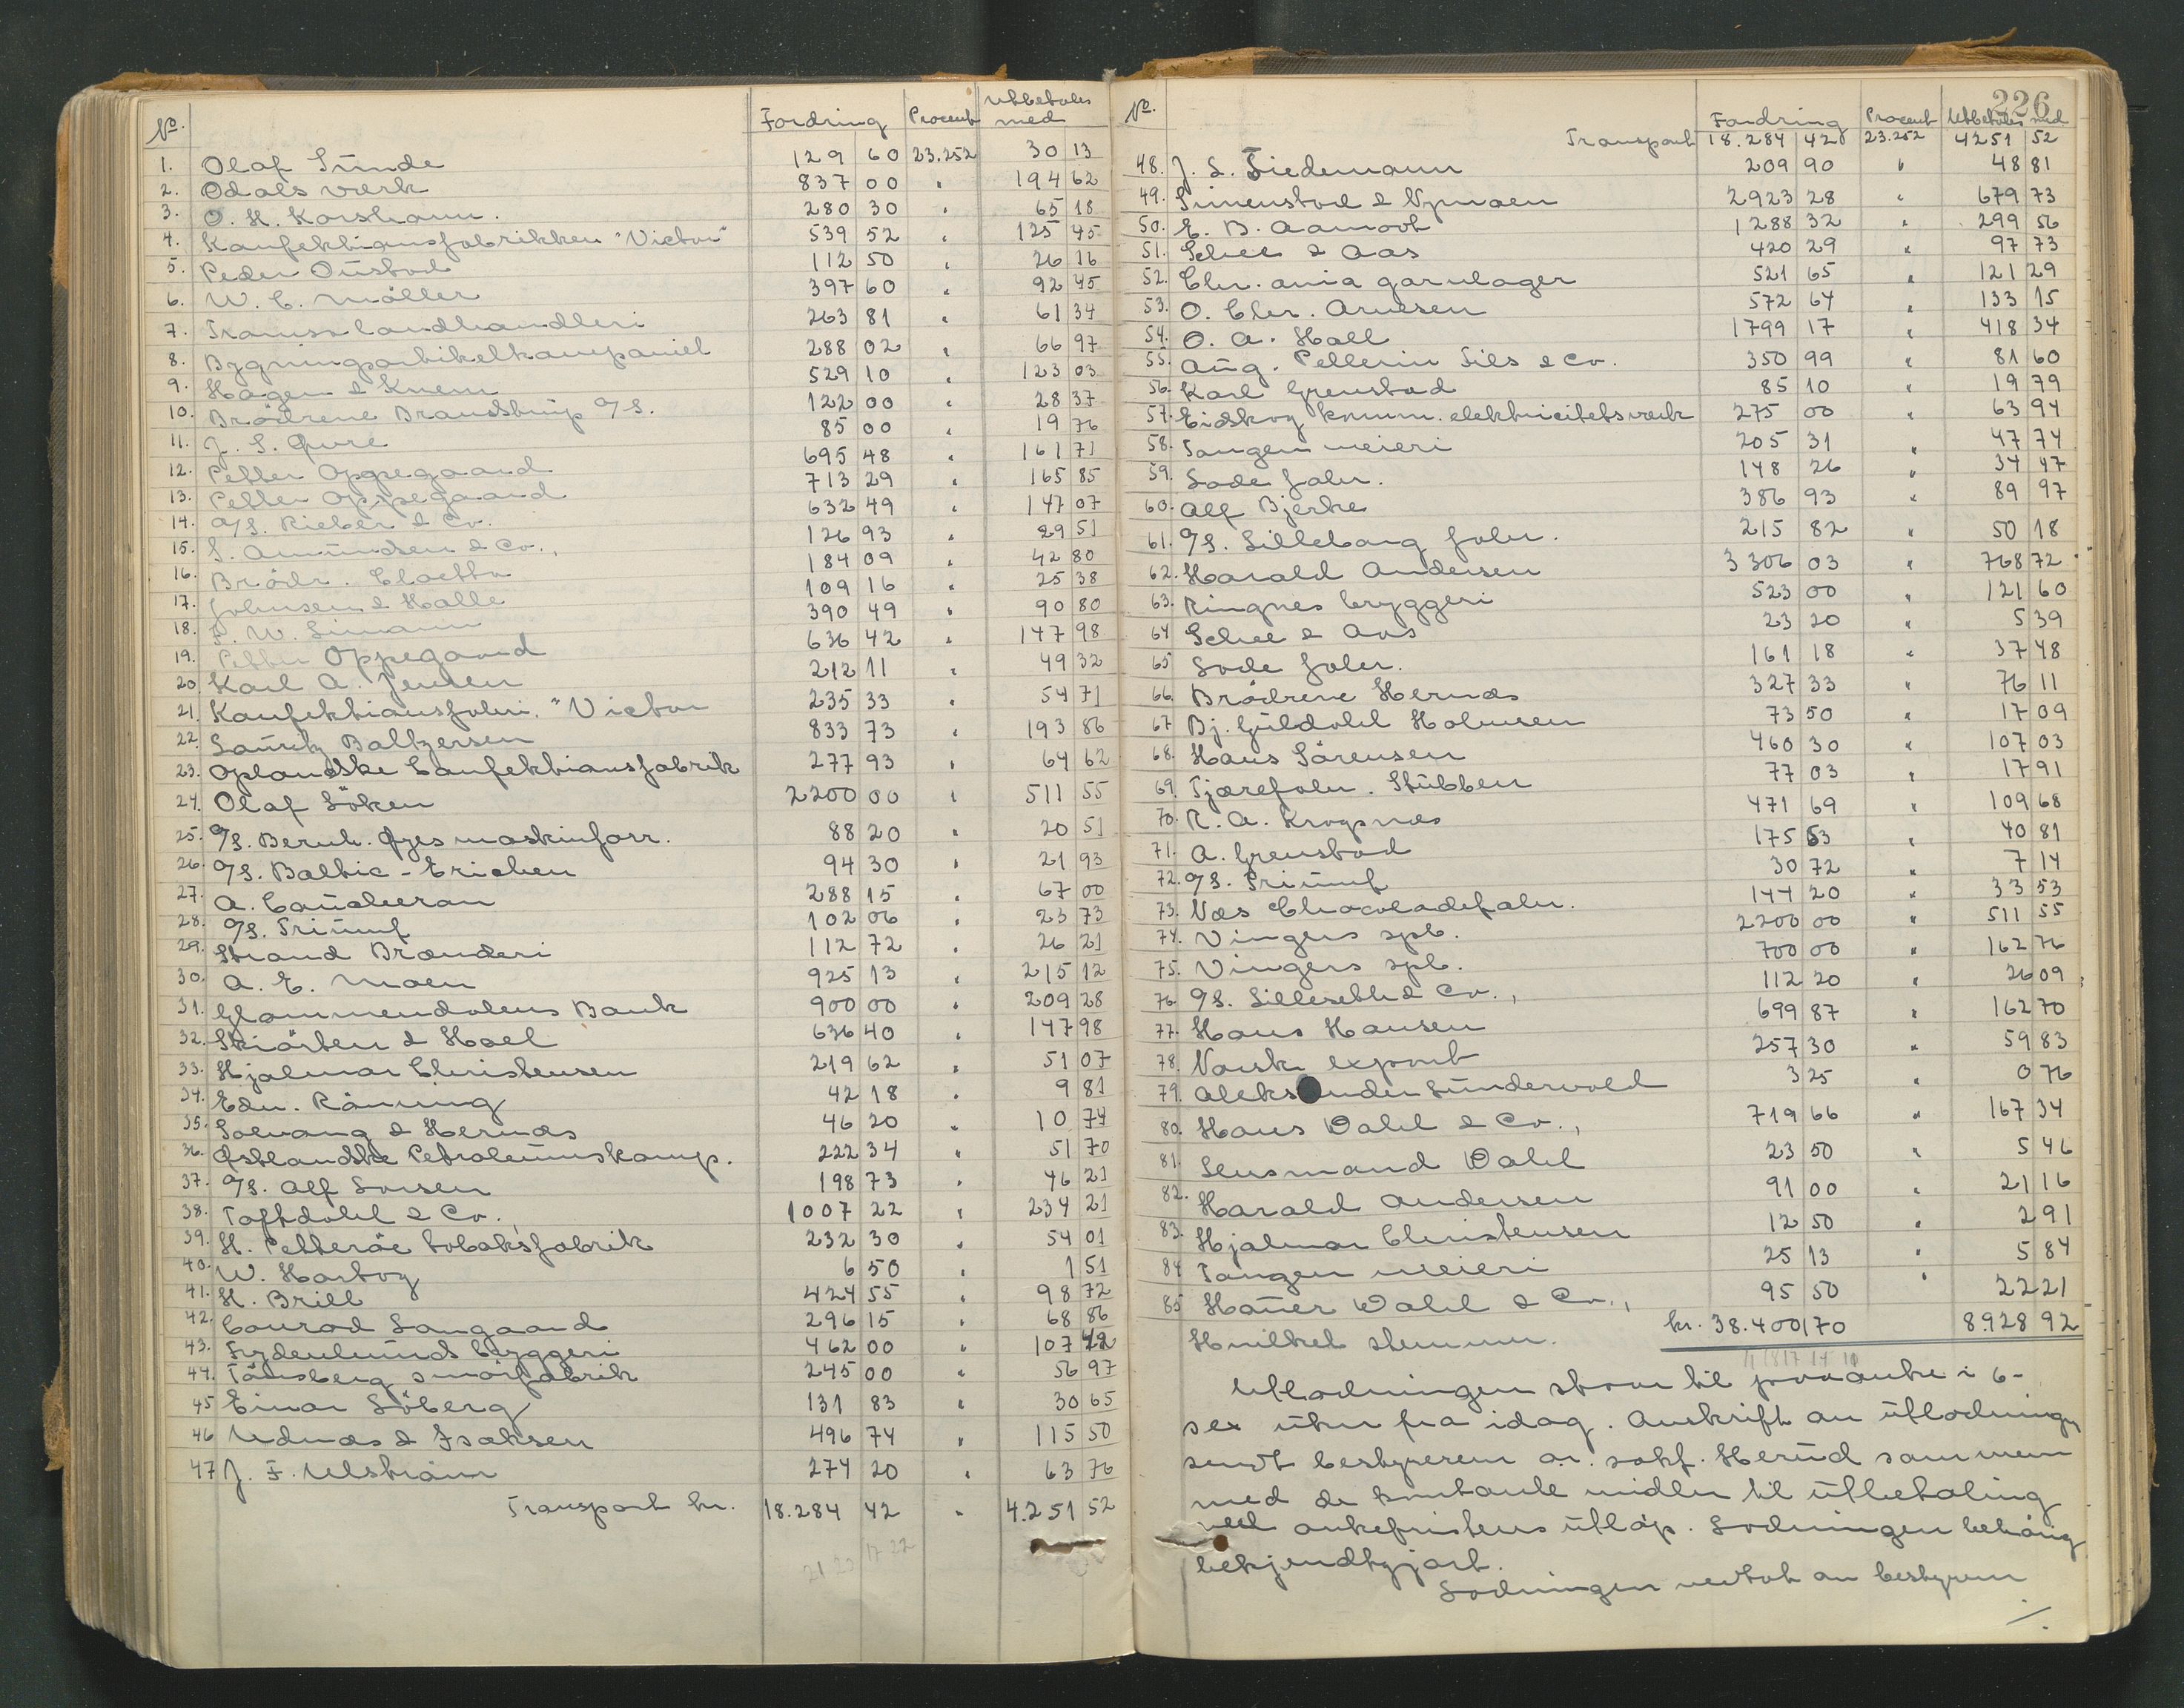 No. Fordring Procent Utbetales med
1. Olaf Sünde 129 60 23.252 30 13
2. Odals verk 837 00 " 194 62
3. O. H. Korshavn. 280 30 " 65 18
4. Konfektionsfabrikken "Victor" 539 52 " 125 45
5. Peder Oustad 112 50 " 26 16
6. W. C. Möller 397 60 " 92 45
7. landhandleri 263 81 " 61 34
8. Bygningsartikelkompaniet 288 02 " 66 97
9. Hagen & Knem 529 10 " 123 03
10. Brödrene Brandstrup A/S. 122 00 " 28 37
11. J. S. Qure 85 00 " 19 76
12. Petter Oppegaard 695 48 " 161 71
13. Petter Oppegaard 713 29 " 165 85
14. A/S. Rieber & Co. 632 49 " 147 07
15. S. Amündsen & Co., 126 93 " 29 51
16. Brödr. Cloetta 184 09 " 42 80
17. Johnsen & Halle 109 16 " 25 38
18. P. W. Simann 390 49 " 90 80
19. Petter Oppegaard 636 42 " 147 98
20. Karl A. Jensen 212 11 " 49 32
21. Konfektionsfabri. "Victor 235 33 " 54 71
22. Lauritz Baltzersen 833 73 " 193 86
23. Oplandske Confektionsfabrik 277 93 " 64 62
24. Olaf Söken 2200 00 " 511 55
25. A/S. Bernh. Øyes maskinforr. 88 20 " 20 51
26. A/S. Baltic - Erichsen 94 30 " 21 93
27. A. Caucheron 288 15 " 67 00
28. A/S. Triumf 102 06 " 23 73
29. Strand Brænderi 112 72 " 26 21
30. A. E. Moen 925 13 " 215 12
31. Glommendalens Bank 900 00 " 209 28
32. Skiörten & Hoel 636 40 " 147 98
33. Hjalmar Christensen 219 62 " 51 07
34. Edv. Rönning 42 18 " 9 81
35. Solvang & Hernæs 46 20 " 10 74
36. Østlandske Petroleumskomp. 222 34 " 51 70
37. A/S. Alf Larsen 198 73 " 46 21
38. Toftdahl & Co., 1007 22 " 234 21
39. H. Petterøe tobaksfabrik 232 30 " 54 01
40. W. Hartog 6 50 " 1 51
41. H. Brill 424 55 " 98 72
42. Conrad Langaard 296 15 " 68 86
43. Frydenlunds bryggeri 462 00 " 107 42
44. Tönsberg smörfabrik 245 00 " 56 97
45 Einar Söberg 131 83 " 30 65
46 Udnæs & Isaksen 496 74 " 115 50
47 J. F. Ulström 274 20 " 63 76
Transport kr. 18.284 42 " 4.251 52
226
No. Fordring Procent Utbetales med
Transport 18.284 42 23.252 4251 52
48. J. L. Tiedemann 209 90 " 48 81
49. Simenstad & Nymoen 2923 28 " 679 73
50. E. B. Aamodt 1288 32 " 299 56
51. Schee & Aas 420 29 " 97 73
52. Chr. ania garnlager 521 65 " 121 29
53. O. Chr. Arnesen 572 64 " 133 15
54. O. A. Hall 1799 17 " 418 34
55. Aug. Pellerin Fils & Co. 350 99 " 81 60
56. Karl Grenstad 85 10 " 19 79
57. Eidskog komm. elektricitetsverk 275 00 " 63 94
58. Tangen meieri 205 31 " 47 74
59. Lade fabr. 148 26 " 34 47
60. Alf Bjerke 386 93 " 89 97
61. A/S. Lilleborg fabr. 215 82 " 50 18
62. Harald Andersen 3306 03 " 768 72
63. Ringnes bryggeri 523 00 " 121 60
64 Schee & Aas 23 20 " 5 39
65 Lade fabr. 161 18 " 37 48
66. Brödrene Hernæs 327 33 " 76 11
67 Bj. Guldahl Halvorsen 73 50 " 17 09
68. Hans Sörensen 460 30 " 107 03
69. Tjærefabr. Stubben 77 03 " 17 91
70. R. A. Krogsnæs 471 69 " 109 68
71. A. Grenstad 175 53 " 40 81
72. A/S. Triumf 30 72 " 7 14
73. Næs Chocoladefabr. 144 20 " 33 53
74. Vingers spb. 2200 00 " 511 55
75. Vingers spb. 700 00 " 162 76
76. A/S. Lillesæth & Co., 112 20 " 26 09
77. Hans Hansen 699 87 " 162 70
78. Norsk export 257 30 " 59 83
79. Aleksander Sundervold 3 25 " 0 76
80. Hans Dahl & Co., 719 66 " 167 34
81. Lensmand Dahl 23 50 " 5 46
82. Harald Andersen 91 00 " 21 16
83. Hjalmar Christensen 12 50 " 2 91
84 Tangen meieri 25 13 " 5 84
85 Hans Dahl & Co., 95 50 " 22 21
Hvilket stemmer. kr. 38.400 70 8928 92
Utlodningen staar til paaanke i 6-
sex uker fra idag. Avskrift av utlodningen
sendt bestyreren o.r. sakf. Herud sammen
med de kontante midler til utbetaling
ved ankefristens utløp. Lodningen behörig
bekjendtgjort.
Lodningen vedtat av bestyreren
./.